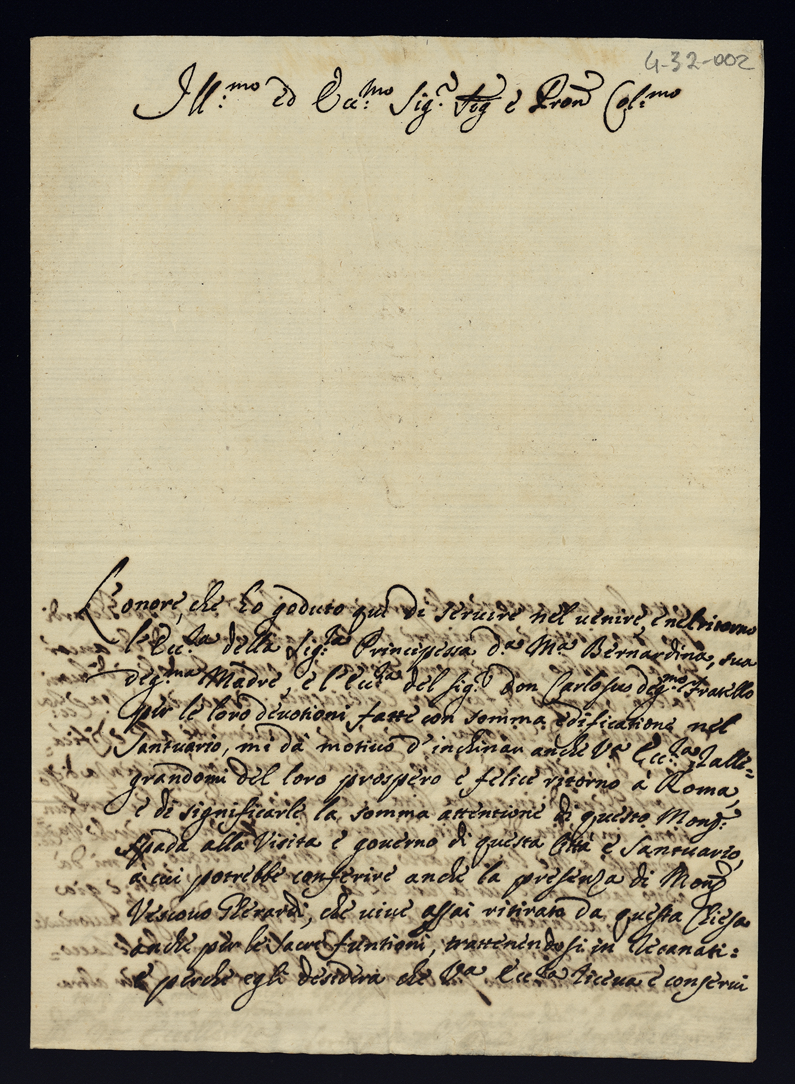 4-32-002
Ill:mo ed Ecc:mo Sig:r Sig è Pron Col:mo
L'onore, che ho goduto quì di seruire nel uenire, e nel ritorno
l'Ecc:za della Sig:ra Principessa Da Ma Bernardina, sua
deg:ma Madre, e l'Ecc:za del Sig:r Don Carlo suo deg:mo Fratello
per le loro deuotioni fatte con somma edificatione nel
Santuario, mi dà motiuo d'inchinar anche Va Ecc:za ralle=
grandomi del loro prospero e felice ritorno à Roma,
e di significarle la somma attentione di questo Mons:r
Spada alla Visita e gouerno di questa Città e Santuario,
a cui potrebbe conferire anche la presenza di Mons:r
Vescouo Gherardi, che uiue assai ritirato da questa Chiesa
anche per le sacre funtioni, trattenendosi in Recanati:
e perche egli desidera che Va Ecc:za riceua e conserui